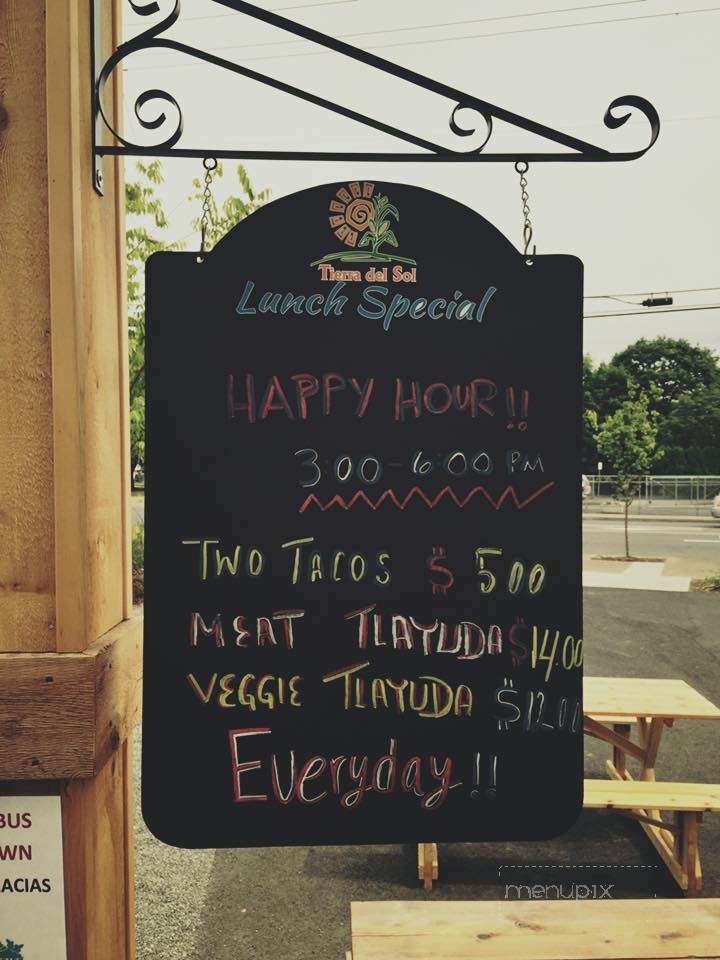 Tierra del Sol
Lunch Special
HAPPY HOUR!!
3:00-6:00 PM
TWO TACOS $ 500
MEAT TLAYUDA $14.00
VEGGIE TLAYUDA $12.00
Everyday!!
BUS
WN
ACIAS
menupix